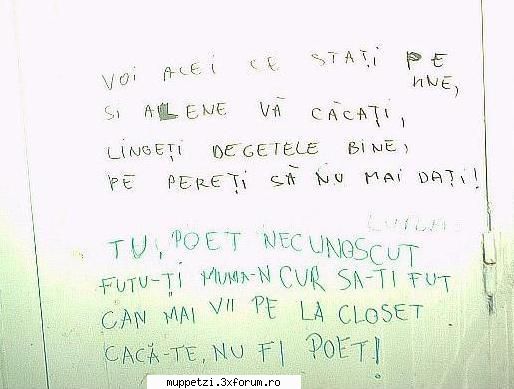 VOI ACEI CE STAȚI PE
VINE,
SI ALENE VĂ CĂCAȚI,
LINGEȚI DEGETELE BINE,
PE PEREȚI SĂ NU MAI DAȚI!
TU, POET NECUNOSCUT
FUTU-ȚI MUMA-N CUR SA-TI FUT
CAN MAI VII PE LA CLOSET
CACĂ-TE, NU FI POET!
muppetzi.3xforum.ro